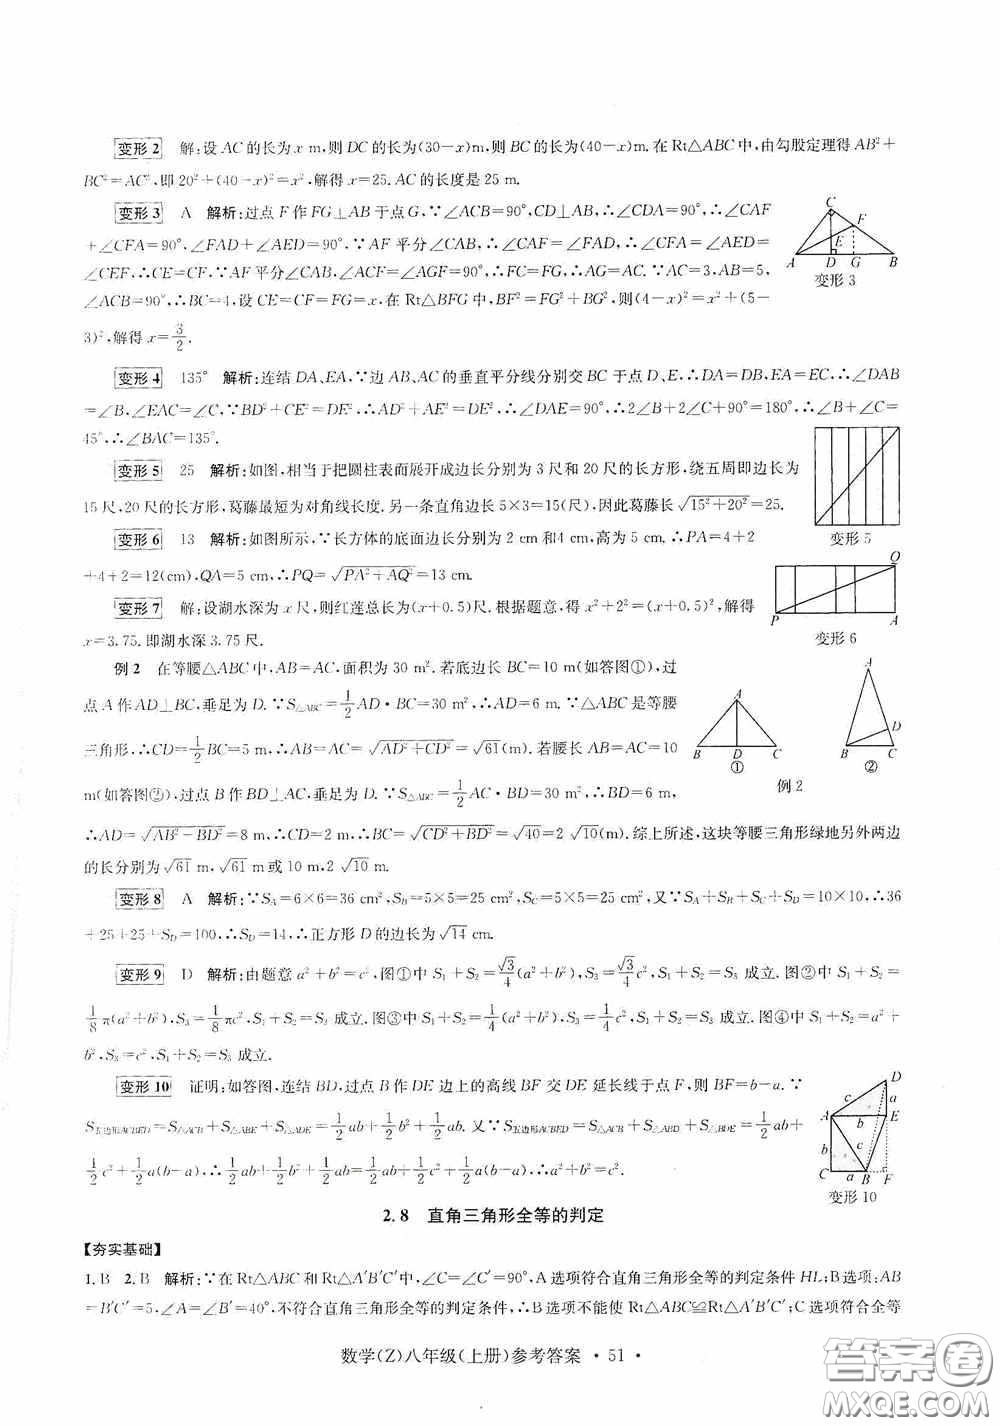 变形2 解:设AC的长为x m,则DC的长为(30-x)m,则BC的长为(40-x)m.在Rt△ABC中,由勾股定理得AB²+
BC²=AC²,即20²+(40-x)²=x²,解得x=25.AC的长度是25 m.
变形3 A 解析:过点F作FG⊥AB于点G,∵∠ACB=90°,CD⊥AB,∴∠CDA=90°,∴∠CAF
+∠CFA=90°,∠FAD+∠AED=90°.∵AF平分∠CAB,∴∠CAF=∠FAD,∴∠CFA=∠AED=
∠CEF,∴CE=CF.∵AF平分∠CAB,∠ACF=∠AGF=90°,∴FC=FG,∴AG=AC.∵AC=3,AB=5,
∠ACB=90°,∴BC=4,设CE=CF=FG=x,在Rt△BFG中,BF²=FG²+BG²,则(4-x)²=x²+(5-
3)²,解得x=3/2.
C F E A D G B
变形3
变形4 135° 解析:连结DA、EA,∵边AB、AC的垂直平分线分别交BC于点D、E,∴DA=DB,EA=EC,∴∠DAB
=∠B,∠EAC=∠C,∵BD²+CE²=DE²,∴AD²+AE²=DE²,∴∠DAE=90°,∴2∠B+2∠C+90°=180°,∴∠B+∠C=
45°,∴∠BAC=135°.
变形5 25 解析:如图,相当于把圆柱表面展开成边长分别为3尺和20尺的长方形,绕五周即边长为
15尺,20尺的长方形,葛藤最短为对角线长度.另一条直角边长5×3=15(尺),因此葛藤长√(15²+20²)=25.
变形5
变形6 13 解析:如图所示,∵长方体的底面边长分别为2 cm和4 cm,高为5 cm.∴PA=4+2
+4+2=12(cm),QA=5 cm,∴PQ=√(PA²+AQ²)=13 cm.
Q P A
变形6
变形7 解:设湖水深为x尺,则红莲总长为(x+0.5)尺.根据题意,得x²+2²=(x+0.5)²,解得
x=3.75.即湖水深3.75尺.
例2 在等腰△ABC中,AB=AC.面积为30 m².若底边长BC=10 m(如答图①),过
点A作AD⊥BC,垂足为D.∵S△ABC=1/2AD·BC=30 m²,∴AD=6 m.∵△ABC是等腰
三角形,∴CD=1/2BC=5 m,∴AB=AC=√(AD²+CD²)=√61(m).若腰长AB=AC=10
m(如答图②),过点B作BD⊥AC,垂足为D.∵S△ABC=1/2AC·BD=30 m²,∴BD=6 m,
∴AD=√(AB²-BD²)=8 m,∴CD=2 m,∴BC=√(CD²+BD²)=√40=2√10(m).综上所述,这块等腰三角形绿地另外两边
的长分别为√61 m,√61 m或10 m,2√10 m.
A B D C ①
A D B C ②
例2
变形8 A 解析:∵S_A=6×6=36 cm²,S_B=5×5=25 cm²,S_C=5×5=25 cm²,又∵S_A+S_B+S_C+S_D=10×10,∴36
+25+25+S_D=100,∴S_D=14,∴正方形D的边长为√14 cm.
变形9 D 解析:由题意a²+b²=c²,图①中S₁+S₂=√3/4(a²+b²),S₃=√3/4c²,S₁+S₂=S₃成立.图②中S₁+S₂=
1/8π(a²+b²),S₃=1/8πc²,S₁+S₂=S₃成立.图③中S₁+S₂=1/4(a²+b²),S₃=1/4c²,S₁+S₂=S₃成立.图④中S₁+S₂=a²+
b²,S₃=c²,S₁+S₂=S₃成立.
变形10 证明:如答图,连结BD,过点B作DE边上的高线BF交DE延长线于点F,则BF=b-a.∵
S五边形ACBED=S△ACB+S△ABE+S△ADE=1/2ab+1/2b²+1/2ab.又∵S五边形ACBED=S△ACB+S△ABD+S△BDE=1/2ab+
1/2c²+1/2a(b-a),∴1/2ab+1/2b²+1/2ab=1/2ab+1/2c²+1/2a(b-a),∴a²+b²=c².
D c a A b E b c C a B F
变形10
2.8 直角三角形全等的判定
【夯实基础】
1.B 2.B 解析:∵在Rt△ABC和Rt△A'B'C'中,∠C=∠C'=90°,A选项符合直角三角形全等的判定条件HL;B选项:AB
=B'C'=5,∠A=∠B'=40°,不符合直角三角形全等的判定条件,∴B选项不能使Rt△ABC≌Rt△A'B'C';C选项符合全等
数学(Z)八年级(上册)参考答案 · 51 ·
答案圈
MXQE.COM